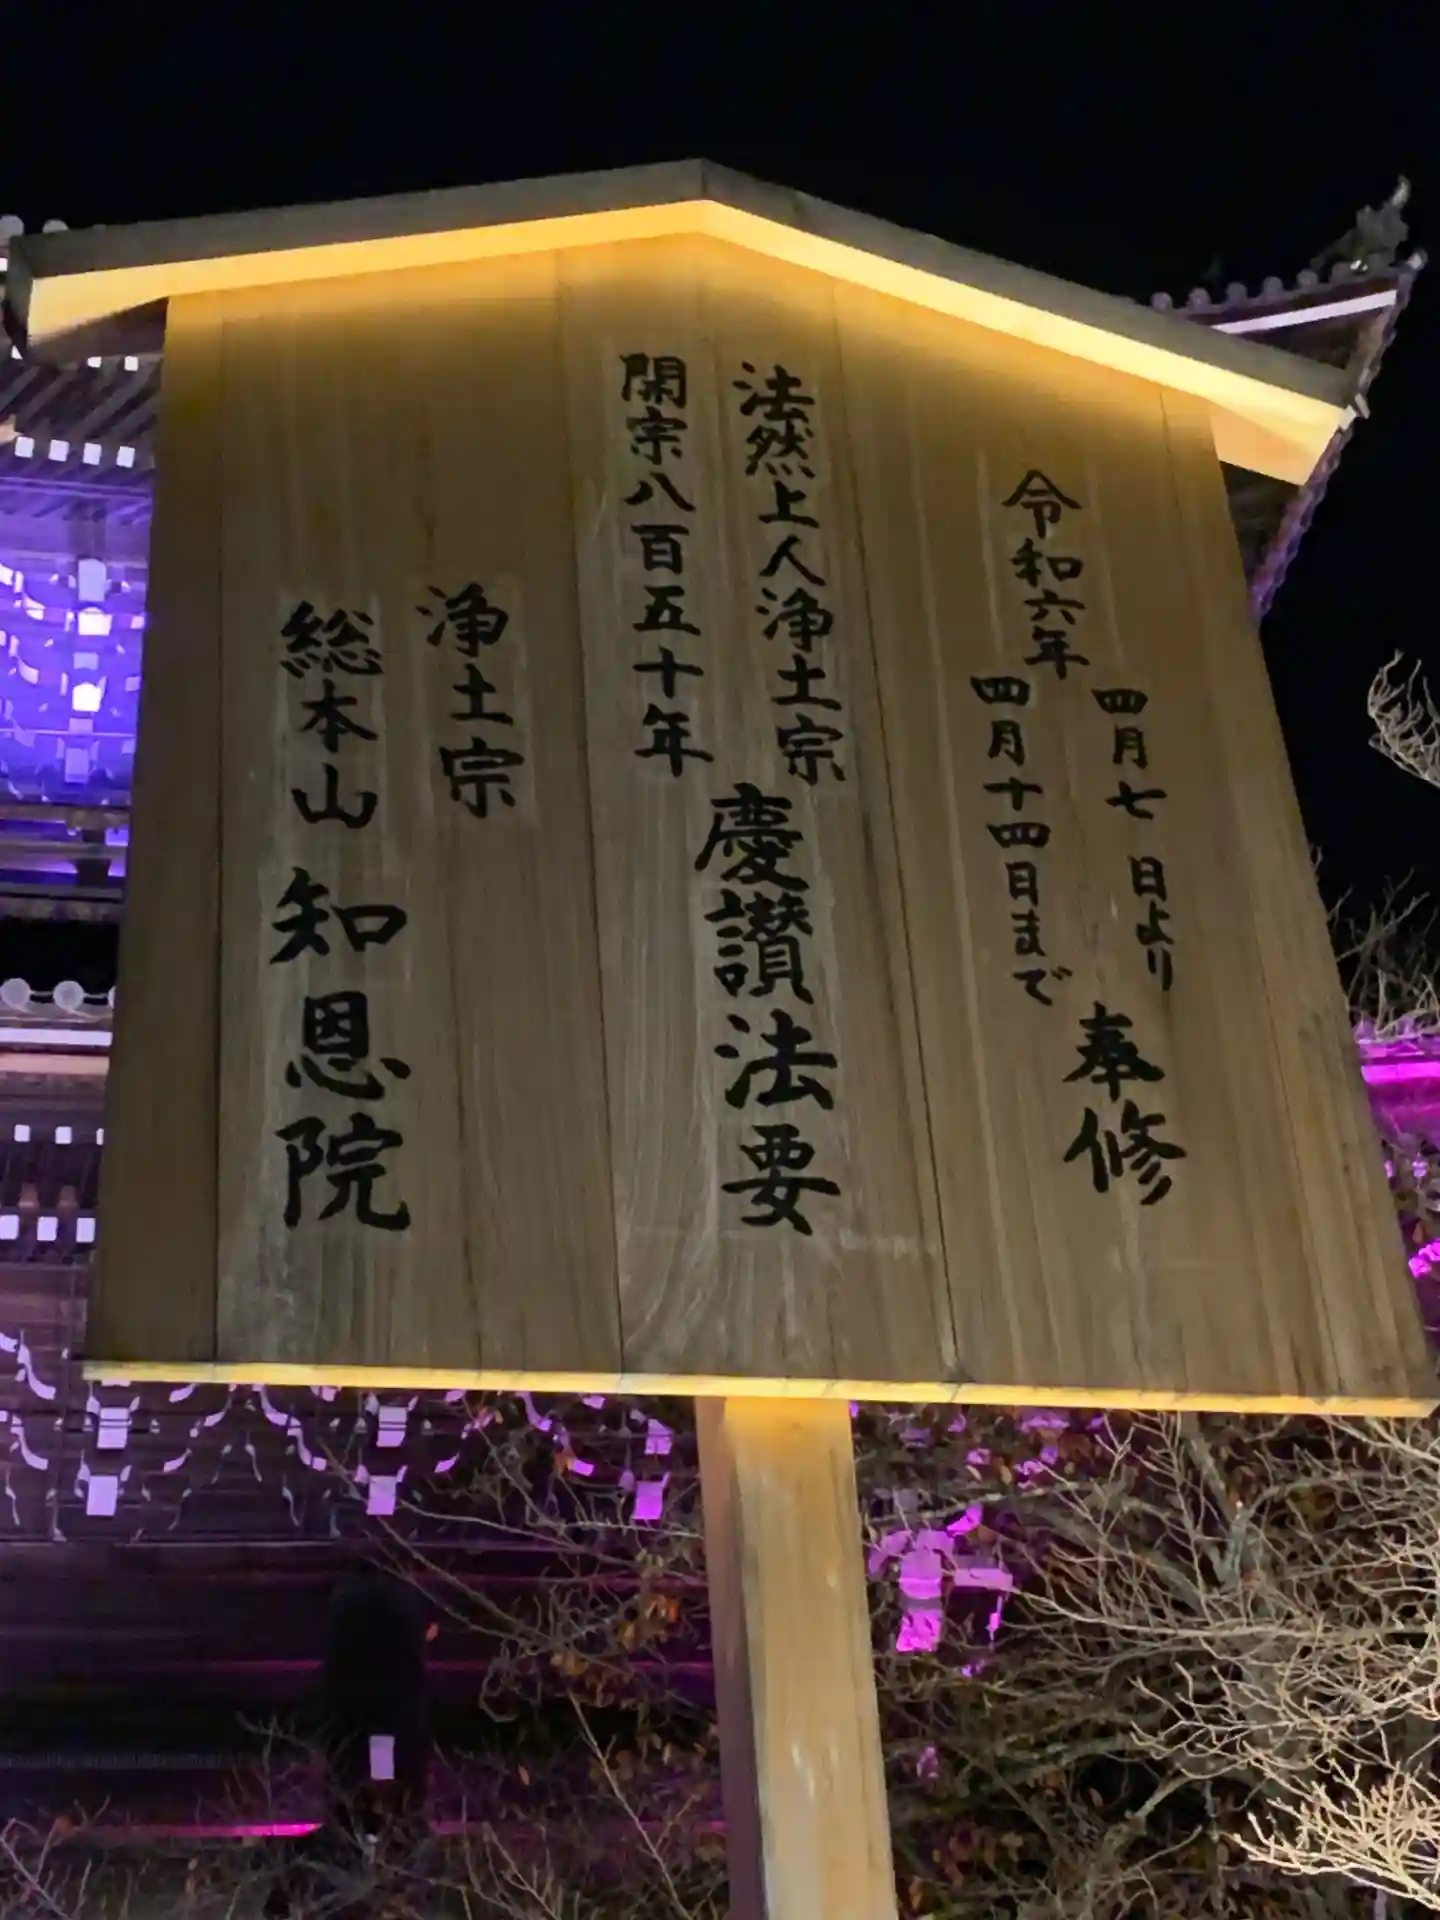 令和六年
四月七日より
四月十四日まで
奉修
法然上人浄土宗
開宗八百五十年
慶讃法要
浄土宗
総本山 知恩院